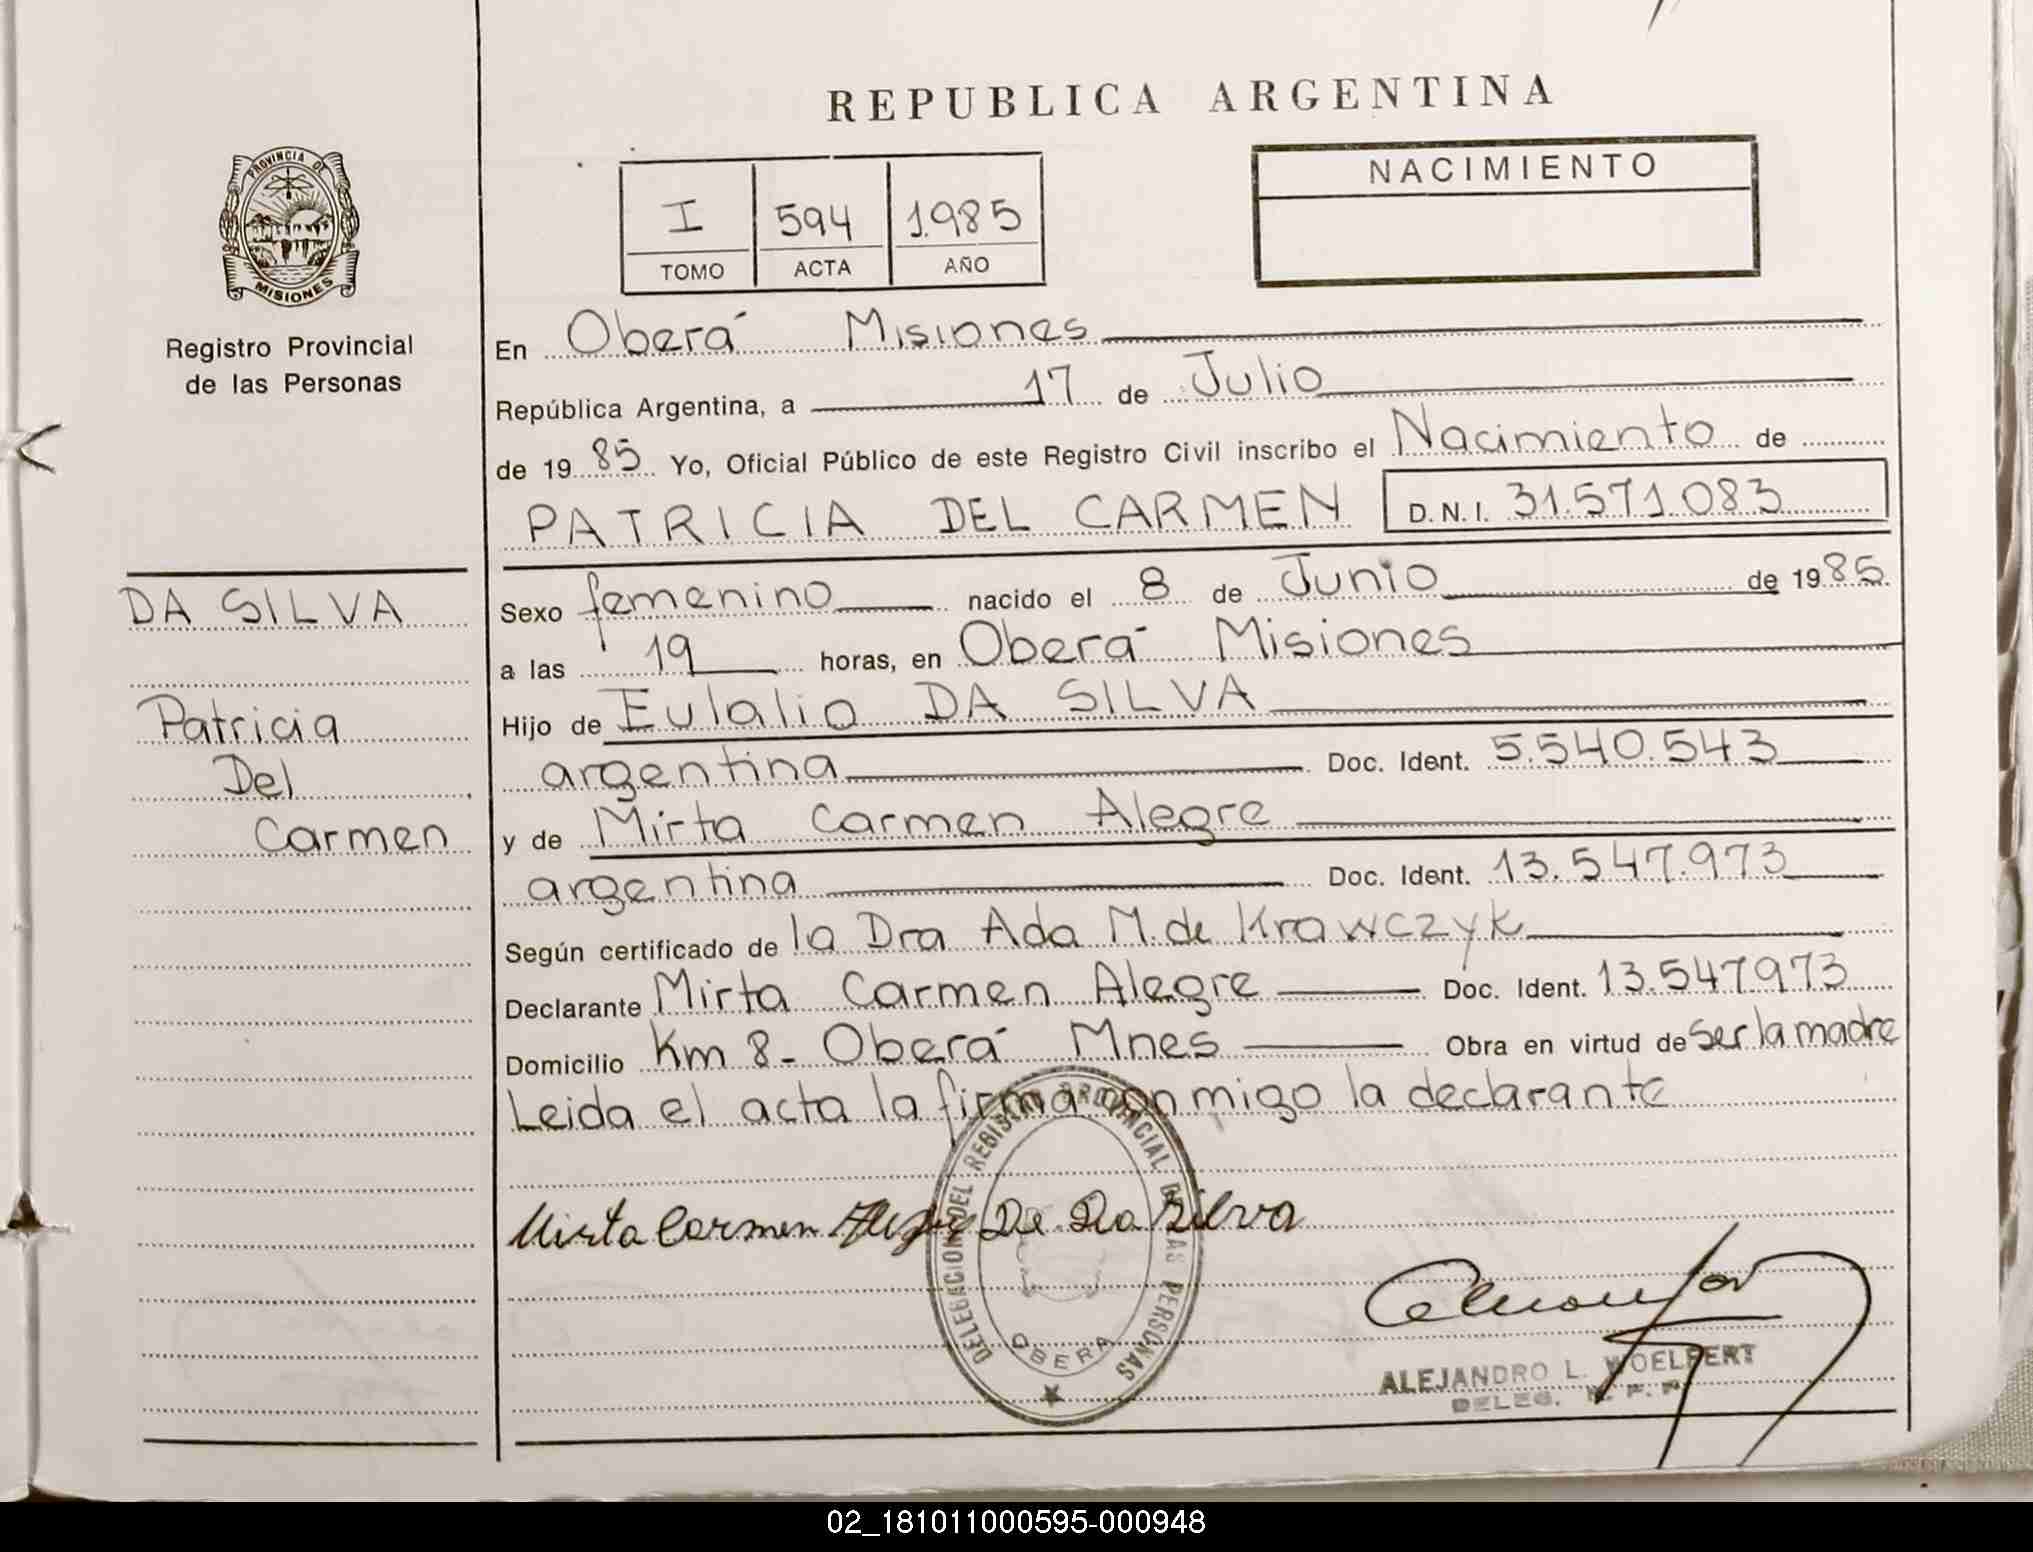 REPUBLICA ARGENTINA
PROVINCIA DE
MISIONES
Registro Provincial
de las Personas
I 594 1.985
TOMO ACTA AÑO
NACIMIENTO
En Oberá Misiones
República Argentina, a 17 de Julio
de 19 85 Yo, Oficial Público de este Registro Civil inscribo el Nacimiento de
PATRICIA DEL CARMEN D.N.I. 31.571.083
DA SILVA
Patricia
Del
Carmen
Sexo femenino nacido el 8 de Junio de 1985
a las 19 horas, en Oberá Misiones
Hijo de Eulalio DA SILVA
argentina Doc. Ident. 5.540.543
y de Mirta Carmen Alegre
argentina Doc. Ident. 13.547.973
Según certificado de la Dra Ada M. de Krawczyk
Declarante Mirta Carmen Alegre Doc. Ident. 13.547973
Domicilio Km 8- Oberá Mnes Obra en virtud de ser la madre
Leida el acta la firma conmigo la declarante
Mirta Carmen De Da Silva
DELEGACION DEL REGISTRO PROVINCIAL DE LAS PERSONAS
OBERA
ALEJANDRO L. WOELFERT
DELEG. R. P. P.
02_181011000595-000948